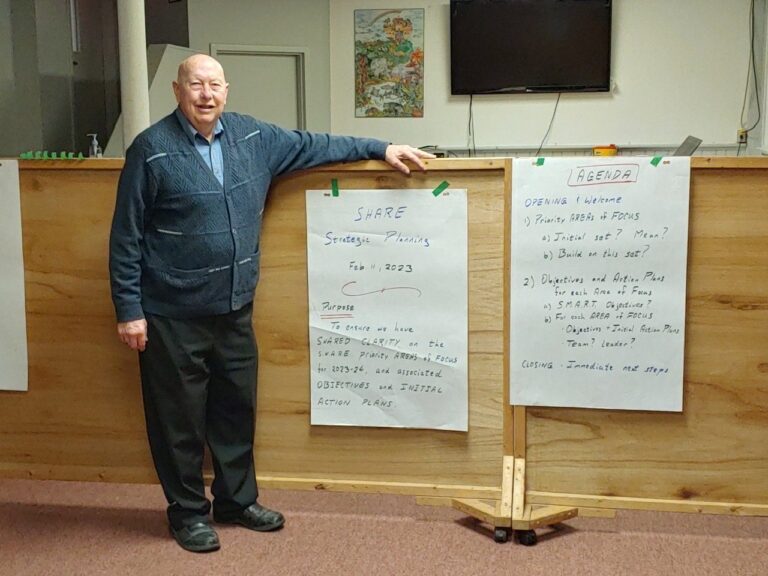 SHARE
Strategic Planning
Feb 11, 2023
Purpose
To ensure we have
SHARED CLARITY on the
SHARE Priority AREAS of FOCUS
for 2023-24, and associated
OBJECTIVES and INITIAL
ACTION PLANS.
AGENDA
OPENING & Welcome
1) Priority AREAS of FOCUS
a) Initial set? Mean?
b) Build on this set?
2) Objectives and Action Plans
for each Area of Focus
a) S.M.A.R.T. Objectives?
b) For each AREA of FOCUS
· Objectives + Initial Action Plans
· Team? Leader?
CLOSING · Immediate next steps